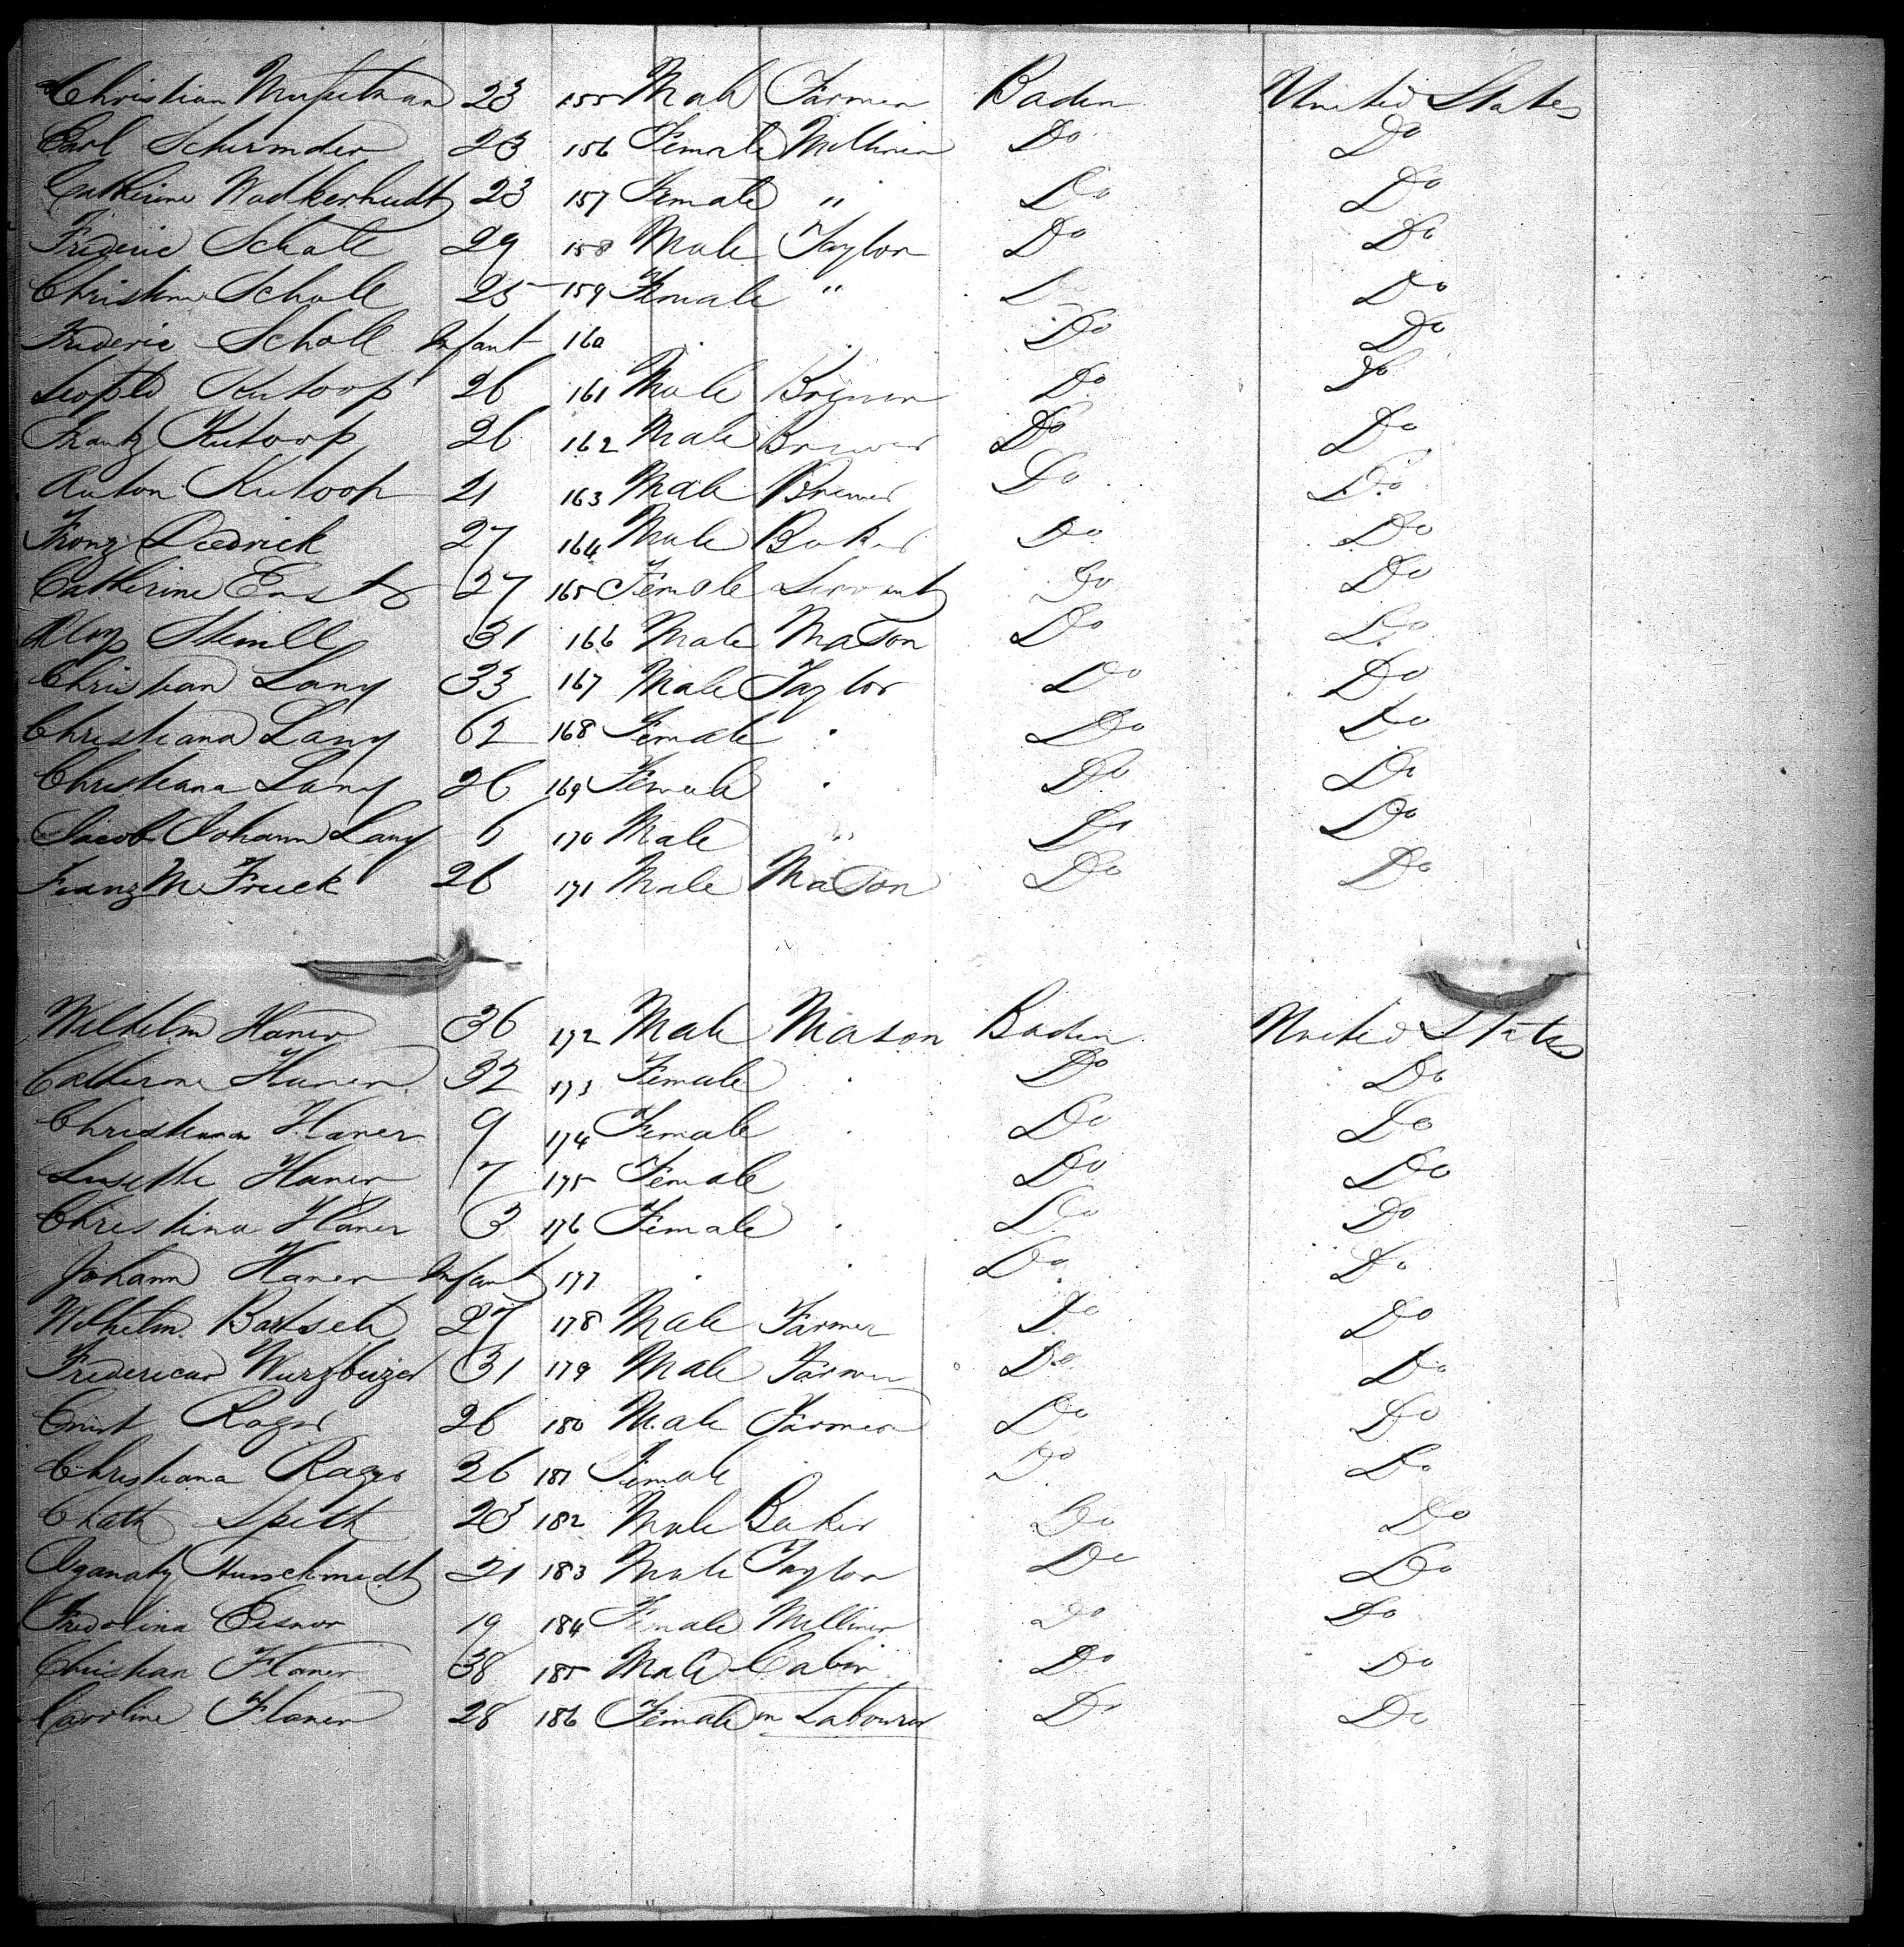 Christian Musselman 23 155 Male Farmer Baden United States
Carl Schirmder 23 156 Female Milliner Do Do
Catherine 23 157 Female " Do Do
Frederic Schall 29 158 Male Taylor Do Do
Christina Schall 25 159 Female " Do Do
Frederic Schall Infant 160 Do Do
Leopold Kutoop 26 161 Male Brewer Do Do
Frantz Kutoop 26 162 Male Brewer Do Do
Anton Kutoop 21 163 Male Brewer Do Do
Franz Diedrick 27 164 Male Baker Do Do
Catherine 27 165 Female Servant Do Do
31 166 Male Mason Do Do
Christian Lany 33 167 Male Taylor Do Do
Christiana Lany 62 168 Female Do Do
Christiana Lany 26 169 Female Do Do
Jacob Johann Lany 6 170 Male " Do Do
Franz M Fruck 26 171 Male Mason Do Do
Wilhelm Haner 36 172 Male Mason Baden United States
Catherine Haner 32 173 Female Do Do
Christiana Haner 9 174 Female Do Do
Lusette Haner 7 175 Female Do Do
Christina Haner 3 176 Female Do Do
Johann Haner Infant 177 Do Do
Wilhelm Bartsch 27 178 Male Farmer Do Do
Fredericar Wurzburger 31 179 Male Farmer Do Do
Ernst Roger 26 180 Male Farmer Do Do
Christiana Roger 26 181 Female Do Do
Speth 23 182 Male Baker Do Do
Huschmedt 21 183 Male Taylor Do Do
Fredolina Eesnor 19 184 Female Milliner Do Do
Christian Flaner 38 185 Male Cabin Do Do
Caroline Flaner 28 186 Female Labourer Do Do